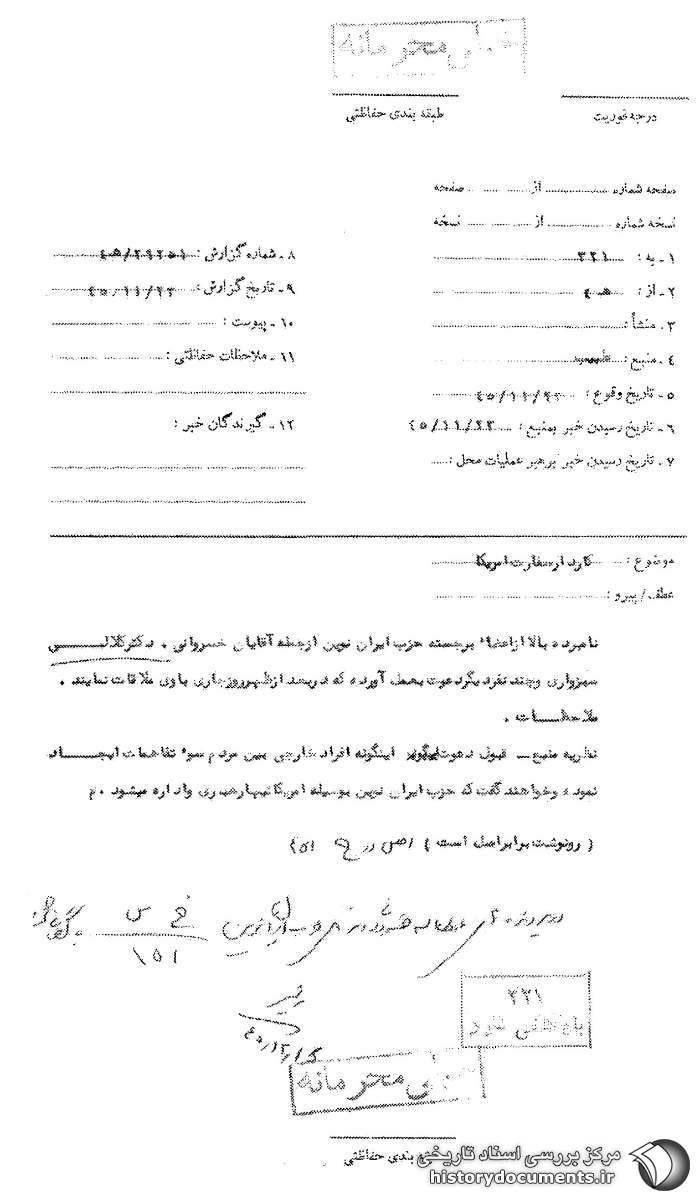 خیلی محرمانه
درجه فوریت
طبقه بندی حفاظتی
صفحه شماره ........ از ........ صفحه
نسخه شماره ........ از ........ نسخه
۱ - به : ۳۲۱
۲ - از :
۳ - منشأ :
۴ - منبع :
۵ - تاریخ وقوع : ۴۵/۱۱/۲۳
۶ - تاریخ رسیدن خبر بمنبع : ۴۵/۱۱/۲۳
۷ - تاریخ رسیدن خبر برهبر عملیات محل :
۸ - شماره گزارش :
۹ - تاریخ گزارش : ۴۵/۱۱/۲۳
۱۰ - پیوست :
۱۱ - ملاحظات حفاظتی :
۱۲ - گیرندگان خبر :
موضوع : کاردار سفارت امریکا
عطف / پیرو :
نامبرده بالا از اعضاء برجسته حزب ایران نوین ازجمله آقایان خسروانی . دکتر کلالی
سبزواری و چند نفر دیگر دعوت بعمل آورده که در بعد از ظهر روز جاری با وی ملاقات نمایند .
ملاحظات .
نظریه منبع - قبول دعوت اینگونه افراد خارجی بین مردم سوء تفاهمات ایجاد
نموده و خواهند گفت که حزب ایران نوین بوسیله امریکائیها رهبری و اداره میشود . م
( رونوشت برابر اصل است ) اصل در
۳۲۱
بایگانی شود
خیلی محرمانه
طبقه بندی حفاظتی
مرکز بررسی اسناد تاریخی
historydocuments.ir